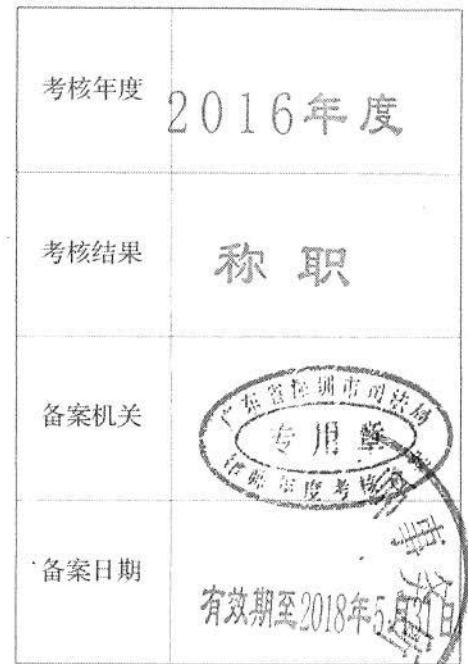 考核年度
2016年度
考核结果
称职
备案机关
广东省深圳市司法局
专用章
律师年度考核
备案日期
有效期至2018年5月31日
事务所